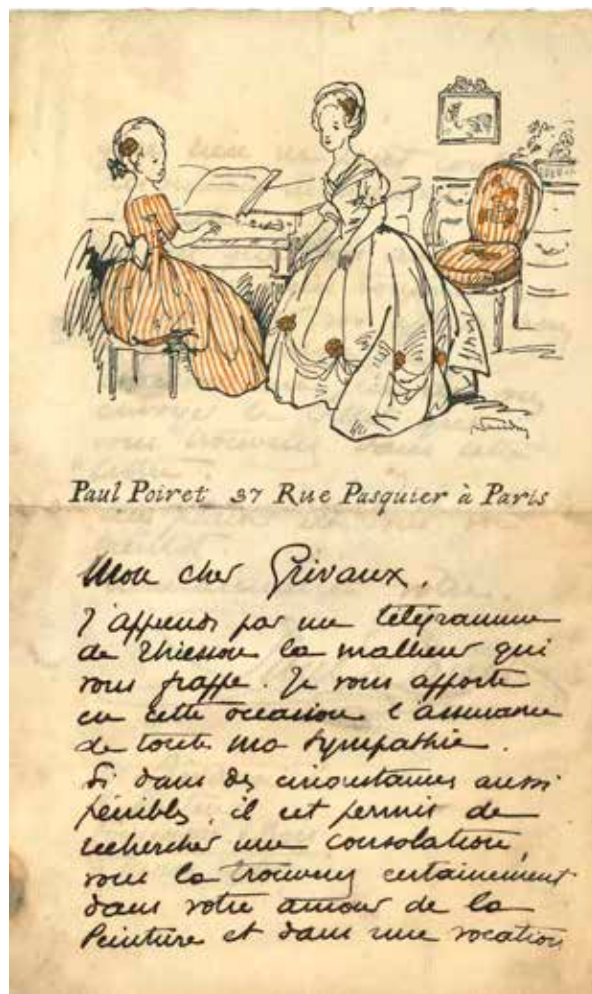 Paul Poiret 37 Rue Pasquier à Paris
Mon cher Grivaux.
J'apprends par un télégramme
de le malheur qui
vous frappe. Je vous apporte
en cette occasion l'assurance
de toute ma sympathie.
Si dans des circonstances aussi
pénibles, il est permis de
rechercher une consolation,
vous la trouverez certainement
dans votre amour de la
Peinture et dans une vocation